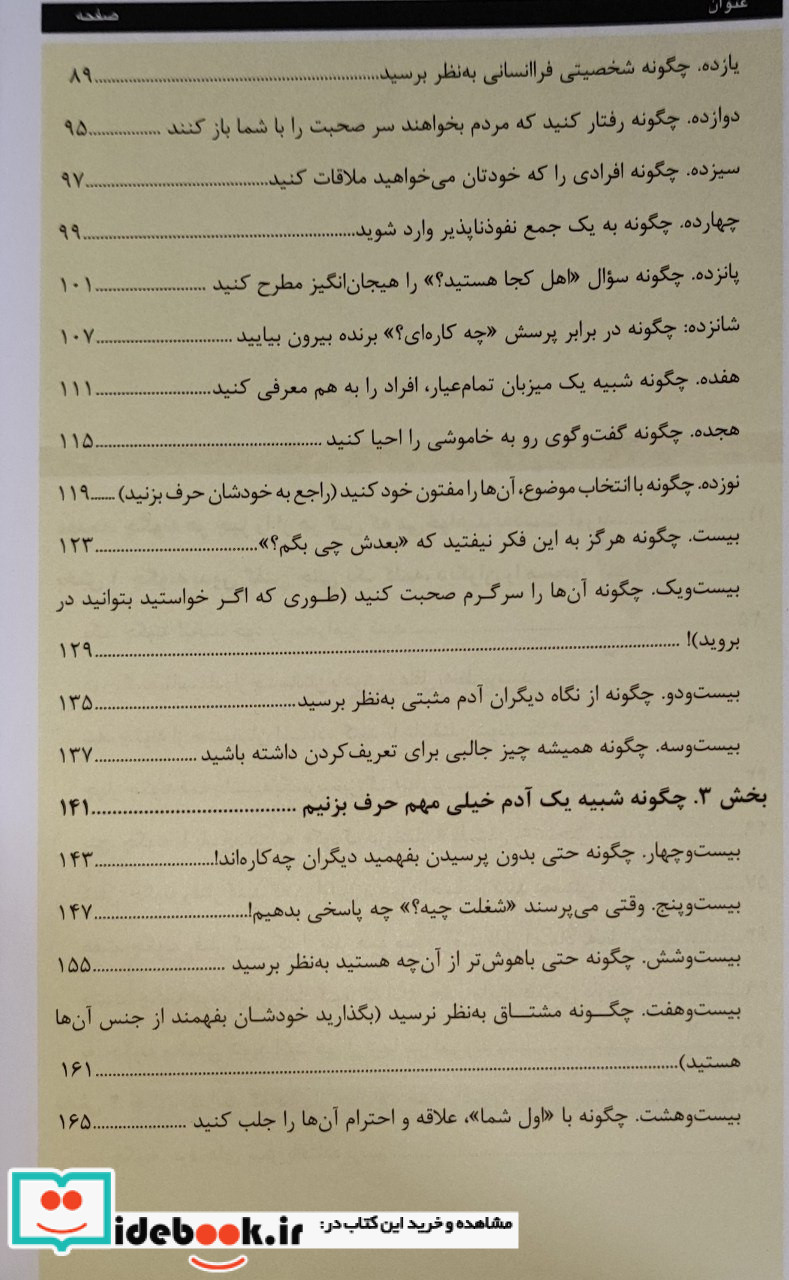 عنوان صفحه
یازده. چگونه شخصیتی فراانسانی به‌نظر برسید....................۸۹
دوازده. چگونه رفتار کنید که مردم بخواهند سر صحبت را با شما باز کنند ................۹۵
سیزده. چگونه افرادی را که خودتان می‌خواهید ملاقات کنید....................۹۷
چهارده. چگونه به یک جمع نفوذناپذیر وارد شوید....................۹۹
پانزده. چگونه سؤال «اهل کجا هستید؟» را هیجان‌انگیز مطرح کنید ....................۱۰۱
شانزده: چگونه در برابر پرسش «چه کاره‌ای؟» برنده بیرون بیایید ....................۱۰۷
هفده. چگونه شبیه یک میزبان تمام‌عیار، افراد را به هم معرفی کنید....................۱۱۱
هجده. چگونه گفت‌وگوی رو به خاموشی را احیا کنید ....................۱۱۵
نوزده. چگونه با انتخاب موضوع، آن‌ها را مفتون خود کنید (راجع به خودشان حرف بزنید) ......۱۱۹
بیست. چگونه هرگز به این فکر نیفتید که «بعدش چی بگم؟»....................۱۲۳
بیست‌ویک. چگونه آن‌ها را سرگرم صحبت کنید (طوری که اگر خواستید بتوانید در
بروید)! ....................۱۲۹
بیست‌ودو. چگونه از نگاه دیگران آدم مثبتی به‌نظر برسید....................۱۳۵
بیست‌وسه. چگونه همیشه چیز جالبی برای تعریف‌کردن داشته باشید ....................۱۳۷
بخش ۳. چگونه شبیه یک آدم خیلی مهم حرف بزنیم ....................۱۴۱
بیست‌وچهار. چگونه حتی بدون پرسیدن بفهمید دیگران چه‌کاره‌اند!....................۱۴۳
بیست‌وپنج. وقتی می‌پرسند «شغلت چیه؟» چه پاسخی بدهیم!....................۱۴۷
بیست‌وشش. چگونه حتی باهوش‌تر از آن‌چه هستید به‌نظر برسید ....................۱۵۵
بیست‌وهفت. چگونه مشتاق به‌نظر نرسید (بگذارید خودشان بفهمند از جنس آن‌ها
هستید)....................۱۶۱
بیست‌وهشت. چگونه با «اول شما»، علاقه و احترام آن‌ها را جلب کنید ....................۱۶۵
مشاهده و خرید این کتاب در:
idebook.ir